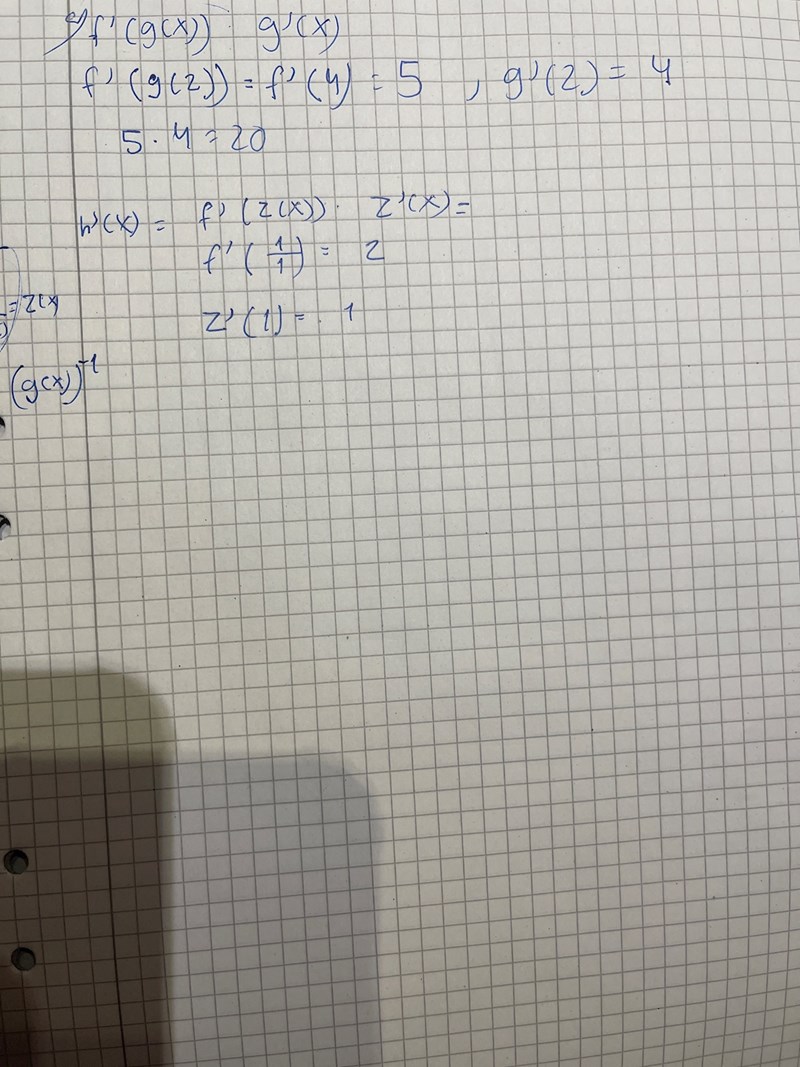 f'(g(x)) · g'(x)
f'(g(2)) = f'(4) = 5 , g'(2) = 4
5 · 4 = 20
4'(x) = f'(z(x)) · z'(x) =
f'(1/1) = 2
z'(1) = 1
= z(x)
(g(x))⁻¹